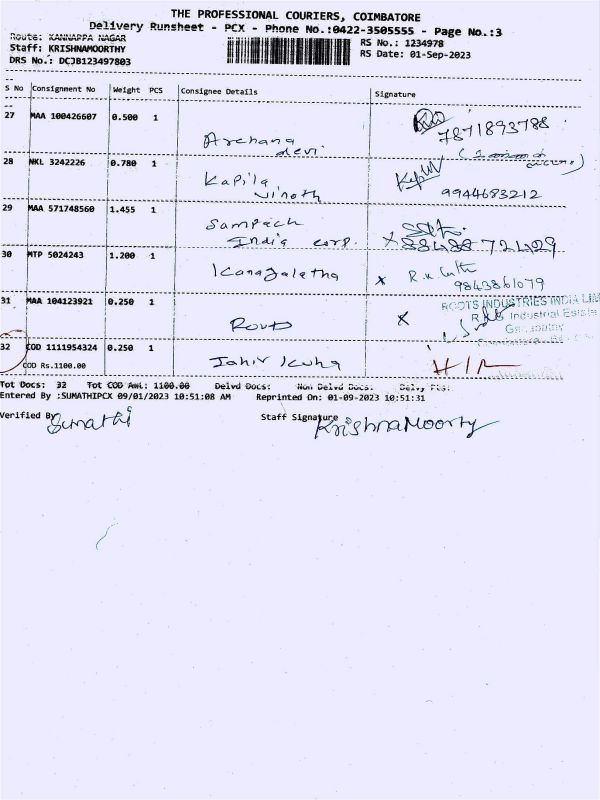 THE PROFESSIONAL COURIERS, COIMBATORE
Delivery Runsheet - PCX - Phone No.:0422-3505555 - Page No.:3
Route: KANNAPPA NAGAR
Staff: KRISHNAMOORTHY
DRS No.: DCJB123497803
RS No.: 1234978
RS Date: 01-Sep-2023
S No Consignment No Weight PCS Consignee Details Signature
27 MAA 100426607 0.500 1
7871893788
Archana
devi
28 NKL 3242226 0.780 1
Kapila
vinoth
9944683212
29 MAA 571748560 1.455 1
Sampach
India corp.
30 MTP 5024243 1.200 1
Kanagalatha
9843861079
31 MAA 104123921 0.250 1
Roots
ROOTS INDUSTRIES INDIA LIM
Industrial Estate
32 COD 1111954324 0.250 1
COD Rs.1100.00
Tot Docs: 32 Tot COD Amt: 1100.00 Delvd Docs: Non Delvd Docs: Delv, Pcs:
Entered By :SUMATHIPCX 09/01/2023 10:51:08 AM Reprinted On: 01-09-2023 10:51:31
Verified By Sumathi
Staff Signature KrishnaMoorty